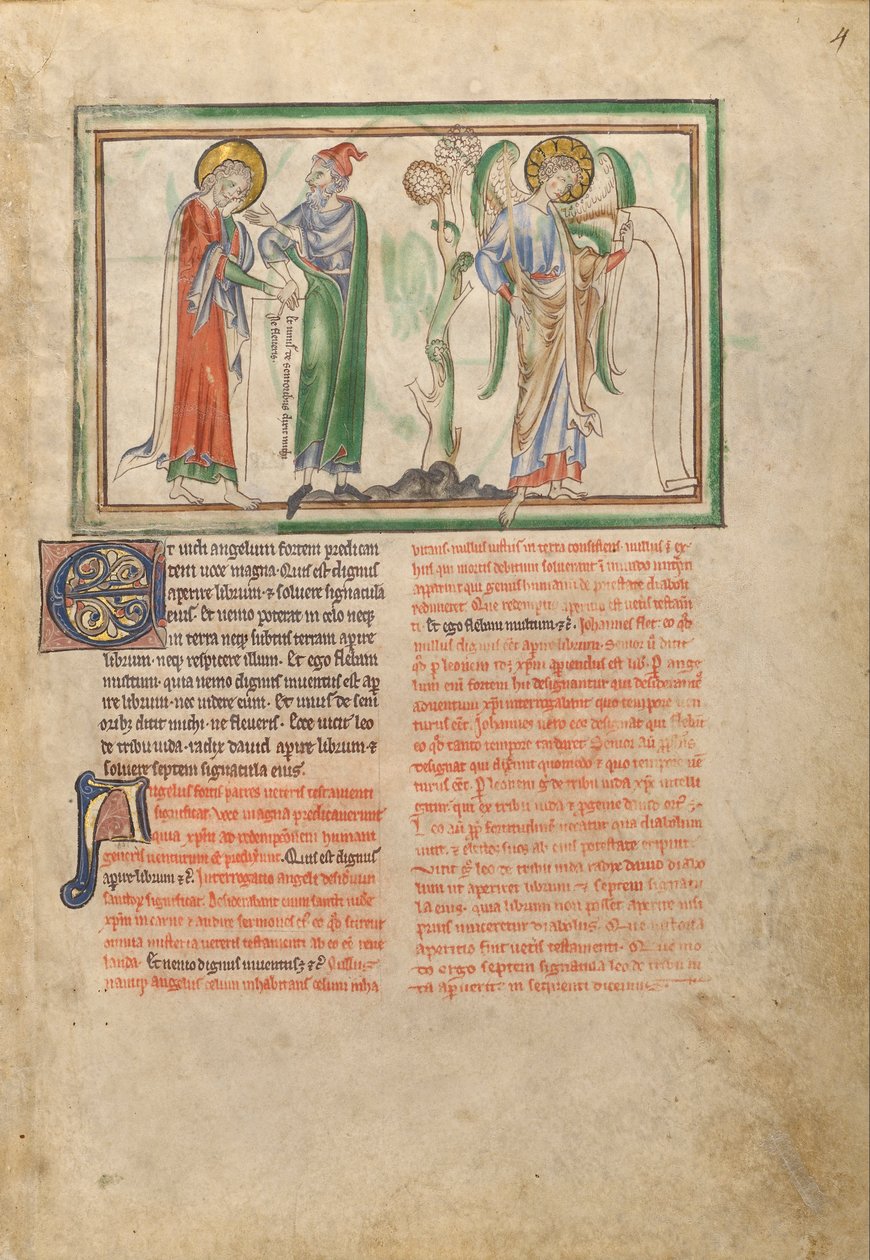 4
Et unus de senioribus dixit michi
Ne fleveris.
Et vidi angelum fortem predican
tem voce magna. Quis est dignus
aperire librum. ⁊ solvere signacula
eius. Et nemo poterat in celo neqꝫ
in terra neqꝫ subtus terram apire
librum. neqꝫ respicere illum. Et ego flebam
multum. quia nemo dignus inventus est ap
ire librum. nec videre eum. Et unus de seni
oribꝫ dicit michi. ne fleveris. Ecce vicit leo
de tribu iuda. radix david apire librum. ⁊
solvere septem signacula eius.
Angelus fortis patres veteris testamenti
significat. Voce magna predicaverunt
quia xpm ad redempcōnem humani
generis venturum predixerunt. Quis est dignus
apire librum ⁊c. Interrogatio angeli desideriū
sanctoꝝ significat. Desiderabant enim sancti videre
xpm in carne ⁊ audire sermones eō qd scirent
omnia misteria veteris testamenti ab eo eē reve
landa. Et nemo dignus inventus ⁊c Nullus
namqꝫ angelus celum inhabitans celum inha
bitans. nullus iustus in terra consistens. nullus
qui mortis debitum solverant
apparuit qui genus humanum de potestate diaboli
redimeret. Que redemptio apertio est vetis testam̄
ti. Et ego flebam multum. ⁊c. Johannes flet. eo qd
nullus dignus apire librum. Senior dicit
qd p leonem xpm apiendus est lib. P ange
lum fortem hii designantur qui desiderant
adventum xpi interrogabant quo tempore ven
turus eēt. Johannes vero eos designat qui flebāt
eo qd tanto tempore tardaret. Senior
designat qui dixerunt quomodo ⁊ quo tempore vē
turus eēt. P leonem de tribu iuda xpc intelli
gitur. qui ex tribu iuda ⁊ pgenie david
Leo fortitudinē vocatur quia diabolum
vicit. ⁊ electos suos ab eius potestate eripuit.
Vicit leo de tribu iuda radix david diabo
lum ut aperiret librum ⁊ septem signacu
la eius. quia librum non posset aperire nisi
prius vinceretur diabolus.
apertio fuit vetis testamenti. Quo mo
do ergo septem signacula leo de tribu iu
da apuerit in sequenti dicemus.